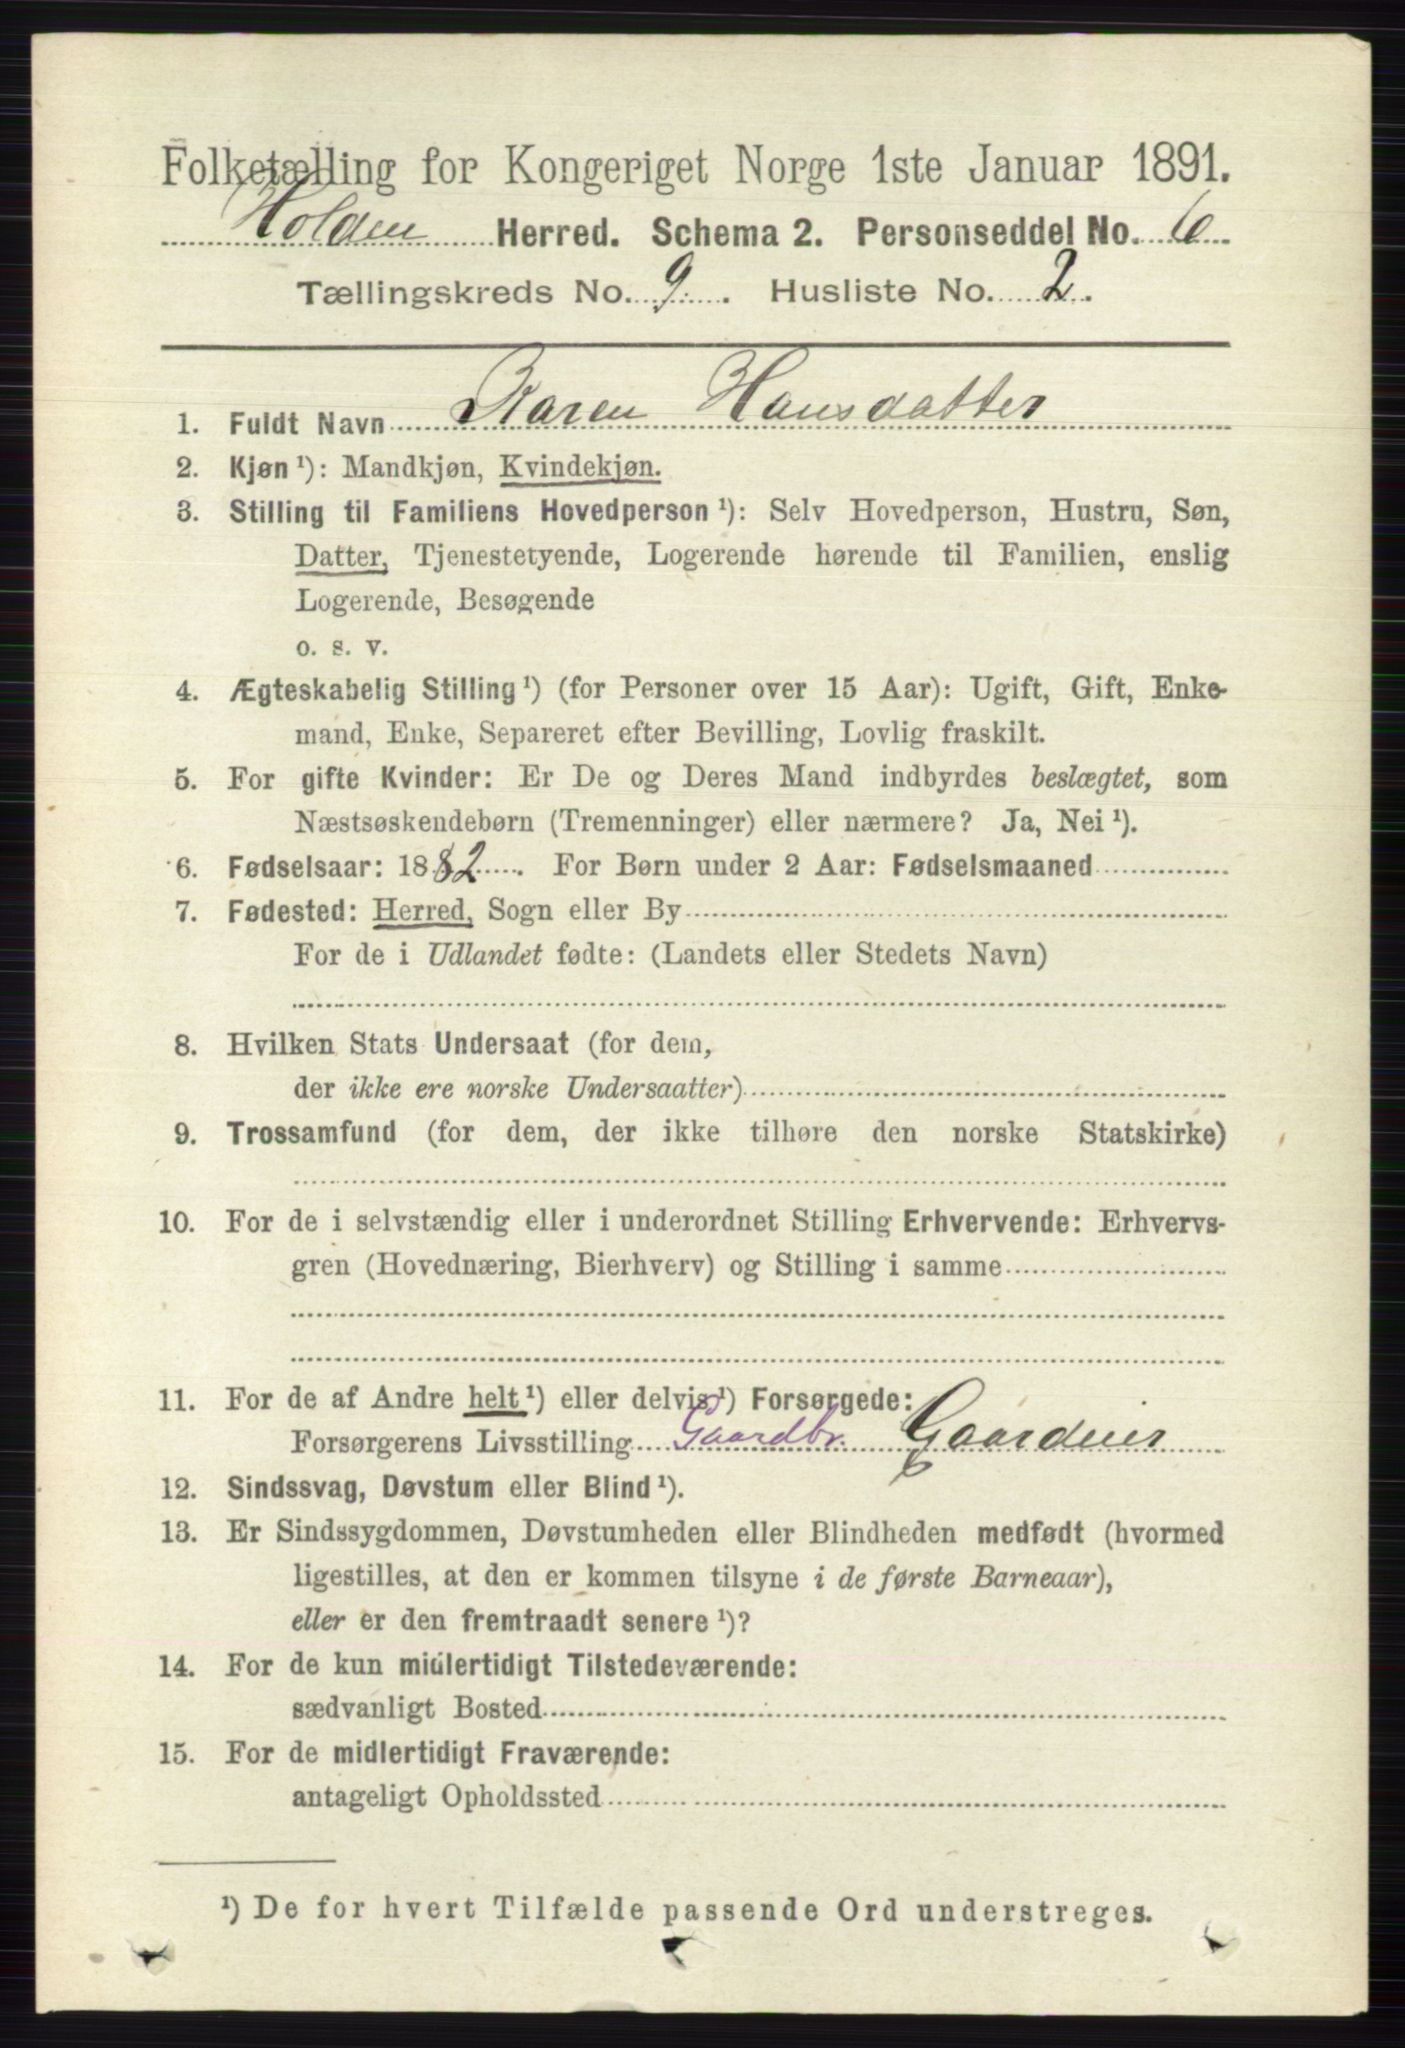 Folketælling for Kongeriget Norge 1ste Januar 1891.
Holden Herred. Schema 2. Personseddel No. 6.
Tællingskreds No. 9. Husliste No. 2.
1. Fuldt Navn Karen Hansdatter
2. Kjøn ¹): Mandkjøn, Kvindekjøn.
3. Stilling til Familiens Hovedperson ¹): Selv Hovedperson, Hustru, Søn,
Datter, Tjenestetyende, Logerende hørende til Familien, enslig
Logerende, Besøgende
o. s. v.
4. Ægteskabelig Stilling ¹) (for Personer over 15 Aar): Ugift, Gift, Enke-
mand, Enke, Separeret efter Bevilling, Lovlig fraskilt.
5. For gifte Kvinder: Er De og Deres Mand indbyrdes beslægtet, som
Næstsøskendebørn (Tremenninger) eller nærmere? Ja, Nei ¹).
6. Fødselsaar: 1882. For Børn under 2 Aar: Fødselsmaaned
7. Fødested: Herred, Sogn eller By
For de i Udlandet fødte: (Landets eller Stedets Navn)
8. Hvilken Stats Undersaat (for dem,
der ikke ere norske Undersaatter)
9. Trossamfund (for dem, der ikke tilhøre den norske Statskirke)
10. For de i selvstændig eller i underordnet Stilling Erhvervende: Erhvervs-
gren (Hovednæring, Bierhverv) og Stilling i samme
11. For de af Andre helt ¹) eller delvis ¹) Forsørgede:
Forsørgerens Livsstilling Gaardbr. Gaardeier
12. Sindssvag, Døvstum eller Blind ¹).
13. Er Sindssygdommen, Døvstumheden eller Blindheden medfødt (hvormed
ligestilles, at den er kommen tilsyne i de første Barneaar),
eller er den fremtraadt senere ¹)?
14. For de kun midlertidigt Tilstedeværende:
sædvanligt Bosted
15. For de midlertidigt Fraværende:
antageligt Opholdssted
¹) De for hvert Tilfælde passende Ord understreges.